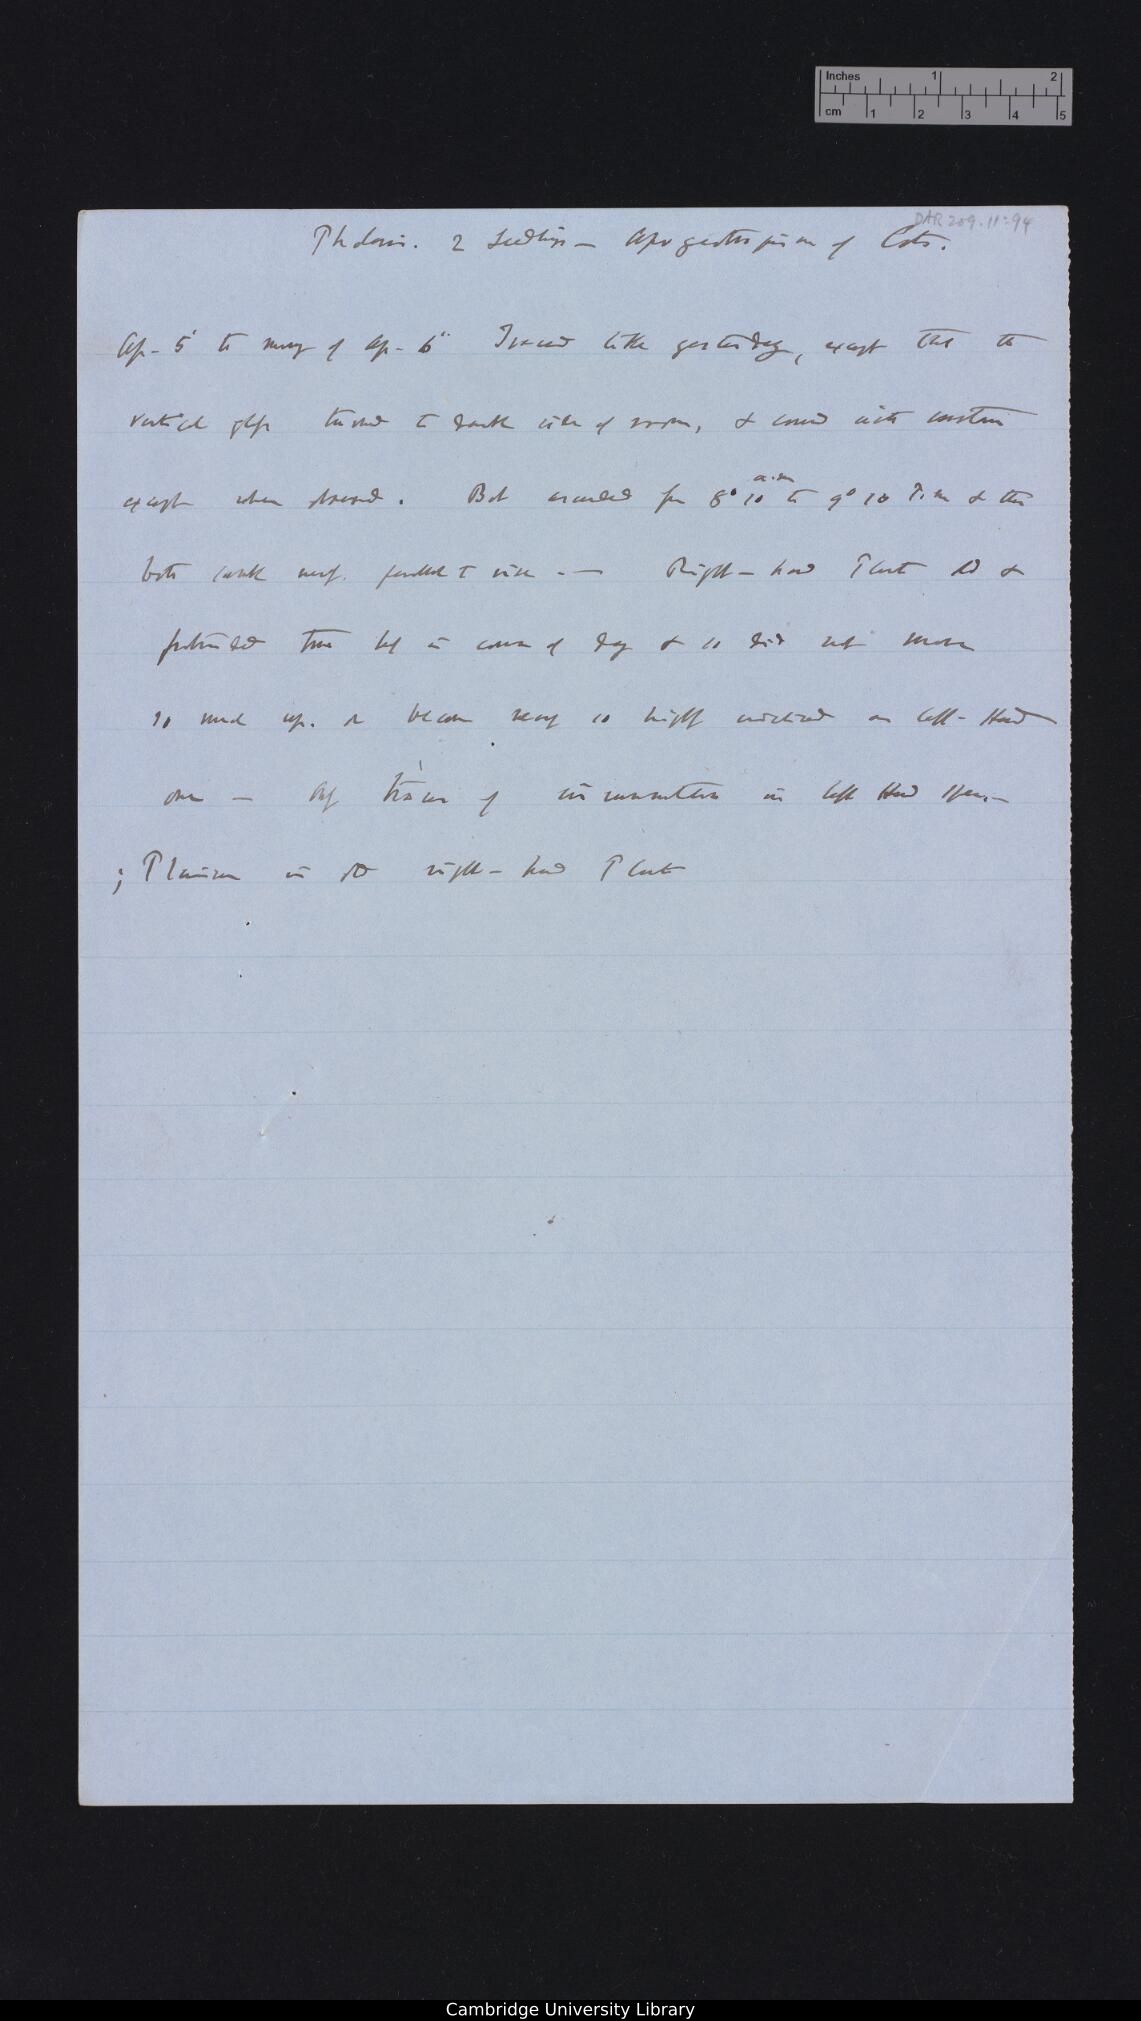 Inches 1 2
cm 1 2 3 4 5
DAR 209.11:94
Phalaris. 2 Seedlings — Apogeotropism of Cots.
Ap. 5' to morng of Ap. 6" Traced like yesterday, except that the
vertical glass turned to dark side of room, & covered with
except when observed. Both ascended from 8° 10' a.m to 9° 10 P.m & then
both sank nearly parallel — Right-hand Plant &
protruded true leaf in course of day & so did not move
so much up. or become nearly so highly inclined as left-Hand
one — Only traces of circumnutation in left Hand
; Plainer in right-hand Plant
Cambridge University Library